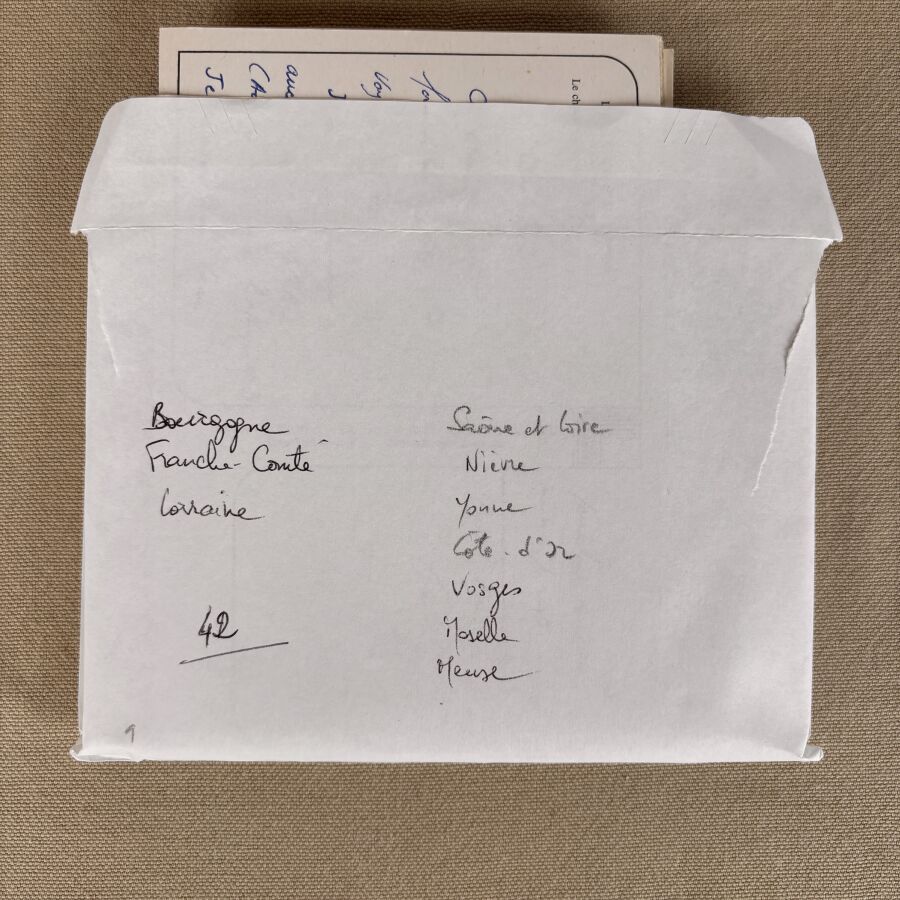 Le ch
Bourgogne
Franche-Comté
Lorraine
42
Saône et Loire
Nièvre
Yonne
Côte-d'Or
Vosges
Moselle
Meuse